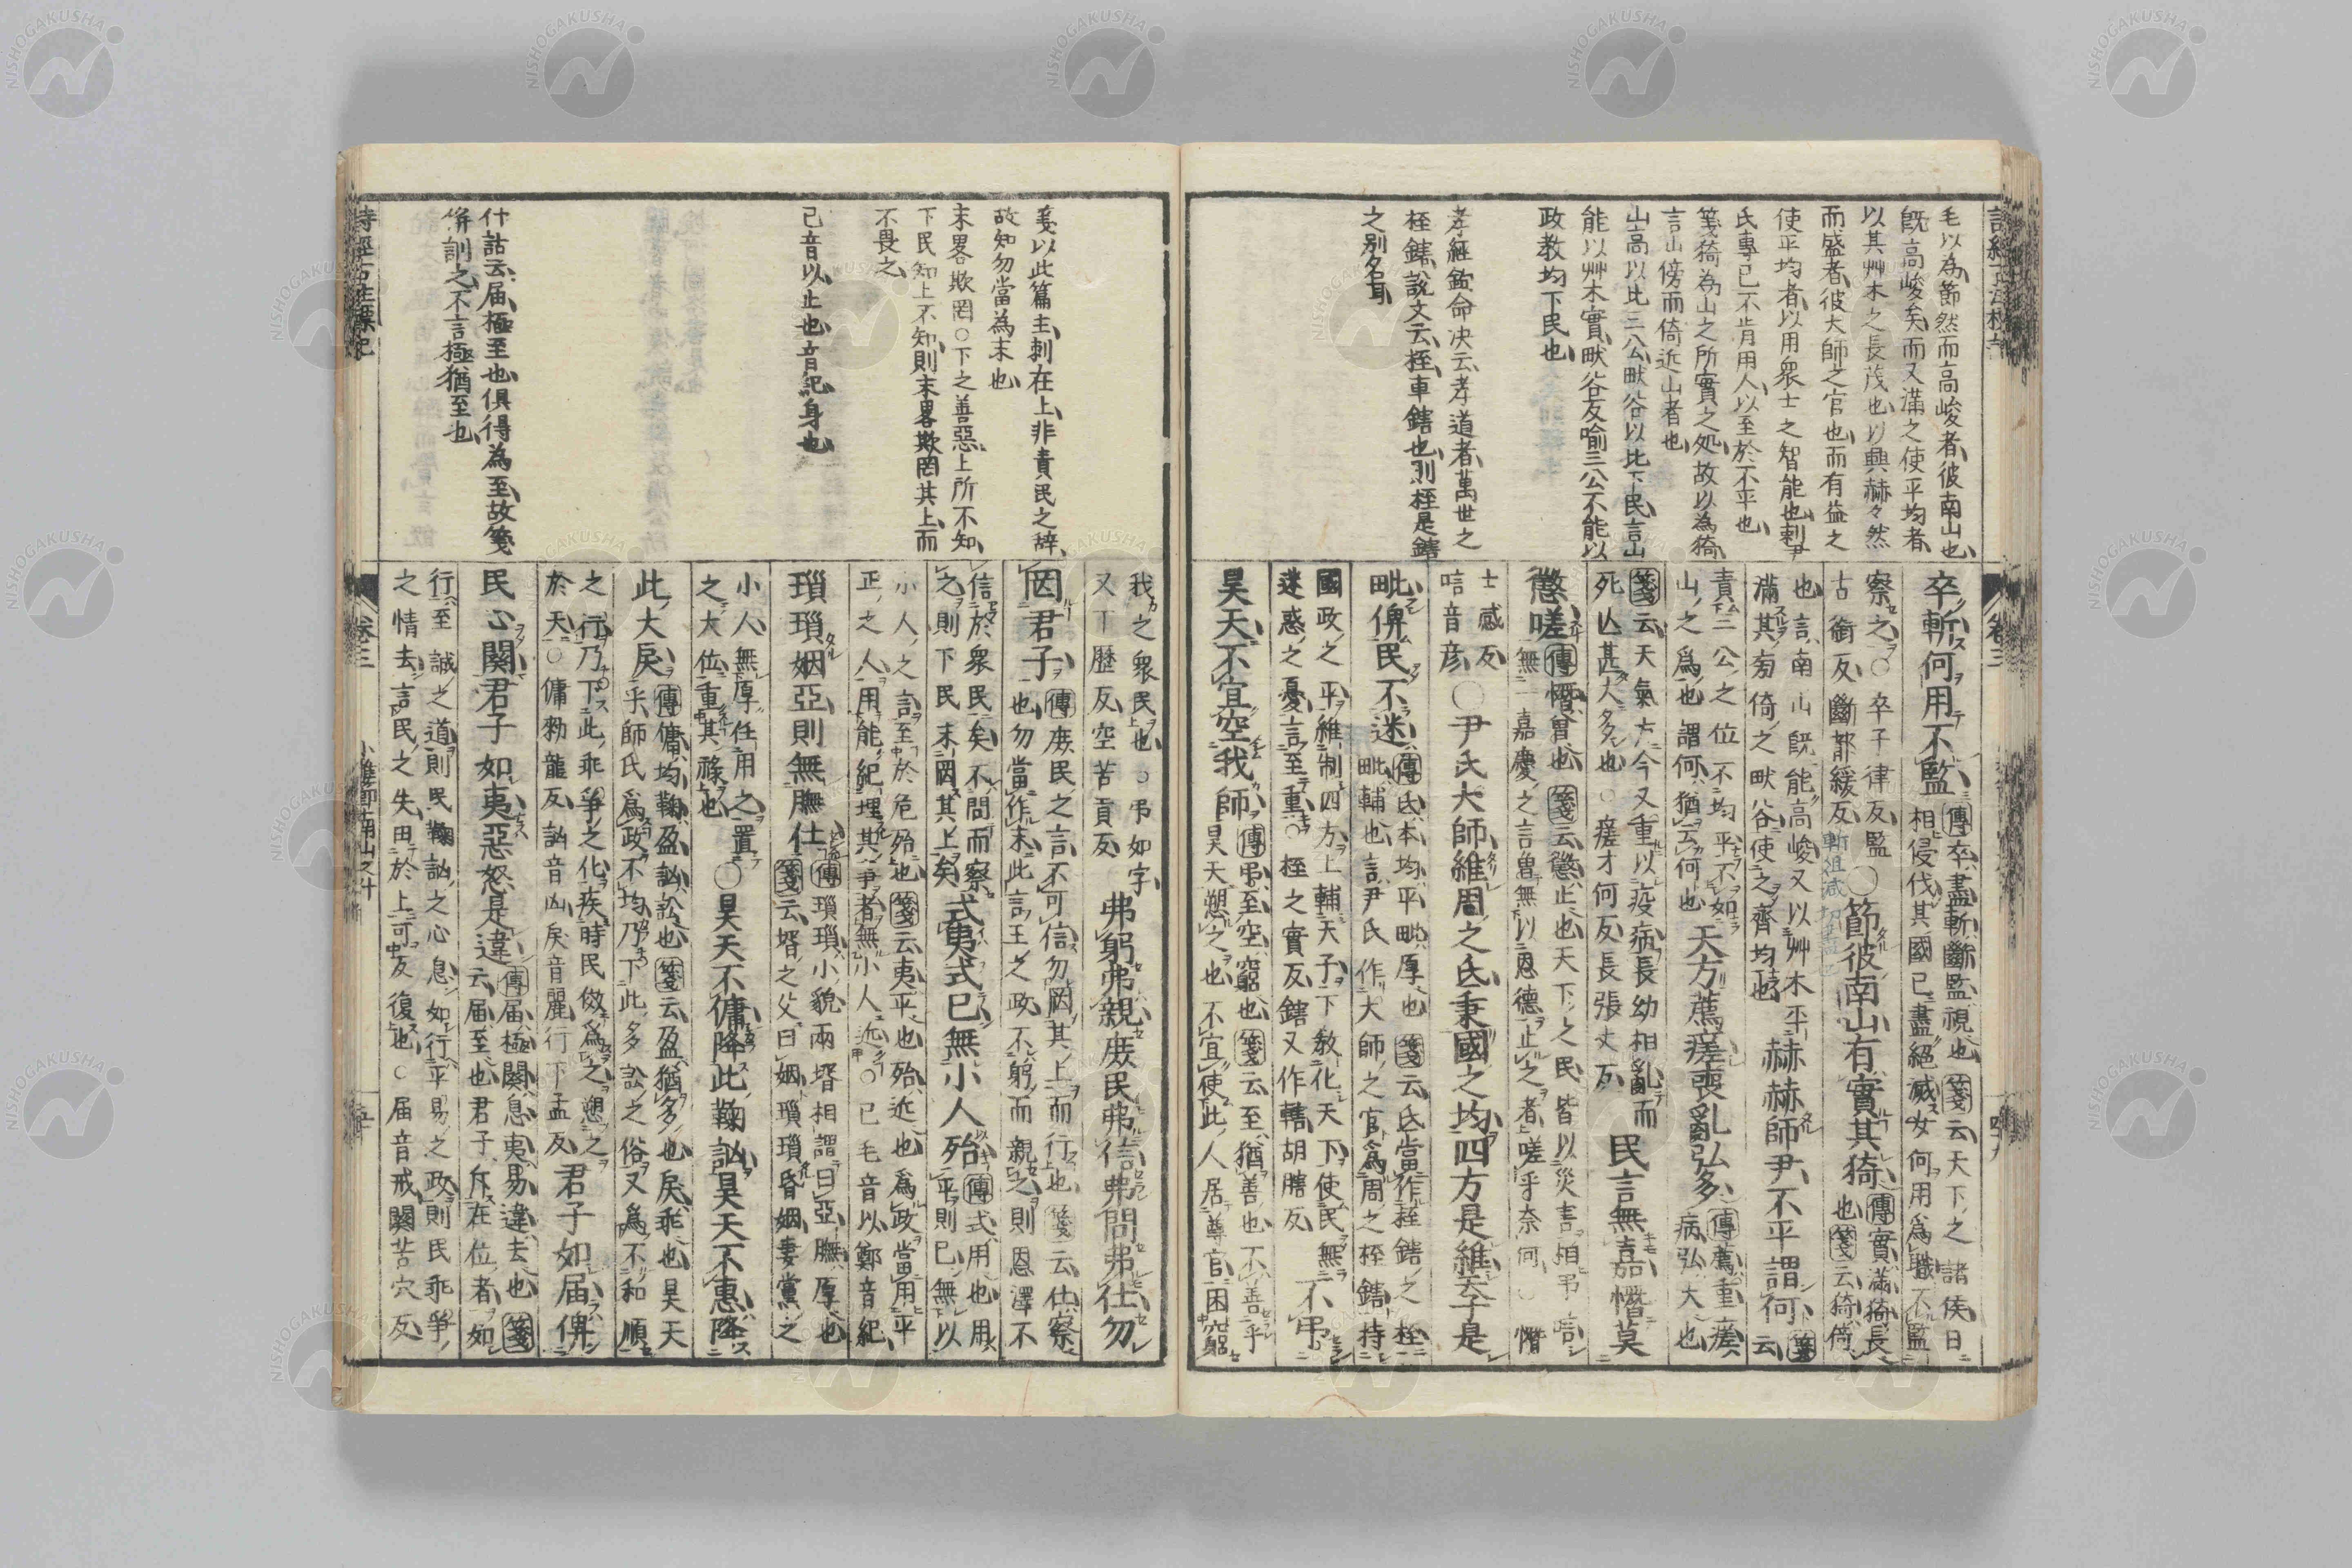 毛以為節然而高峻者彼南山也
既高峻矣而又滿之使平均者
以其艸木之長茂也以興赫々然
而盛者彼大師之官也而有益之
使平均者以用衆士之智能也刺尹
氏專己不肯用人以至於不平也
箋猗為山之所實之処故以為猗
言山傍而倚近山者也
山高以比三公畎谷以比下民言山
能以艸木實畎谷反喻三公不能以
政教均下民也
孝經鉤命决云孝道者萬世之
桎鎋說文云桎車鎋也則桎是鎋
之别名耳
卒斬何用不監 傳卒盡斬斷監視也 箋云天下之諸侯日
相侵伐其國已盡絕滅女何用爲職不監
察之○卒子律反監
古銜反斷都緩反
○節彼南山有實其猗 傳實滿猗長
也 箋云猗倚
也言南山既能高峻又以艸木平
滿其旁倚之畎谷使之齊均也
赫赫師尹不平謂何 箋云
責三公之位不均平不如
山之爲也謂何猶云何也
天方薦瘥喪亂弘多 傳薦重瘥
病弘大也
箋云天氣方今又重以疫病長幼相亂而
死亾甚大多也○瘥才何反長張丈反
民言無嘉憯莫
懲嗟 傳憯曾也 箋云懲止也天下之民皆以災害相弔唁
無一嘉慶之言曾無以恩德止之者嗟乎奈何○憯
士感反
唁音彦
○尹氏大師維周之氐秉國之均四方是維天子是
毗俾民不迷 傳氐本均平毗厚也 箋云氐當作桎鎋之桎
毗輔也言尹氏作大師之官爲周之桎鎋持
國政之平維制四方上輔天子下教化天下使民無
迷惑之憂言至重○桎之實反鎋又作轄胡瞎反
不弔
昊天不宜空我師 傳弔至空窮也 箋云至猶善也不善乎
昊天愬之也不宜使此人居尊官困窮
詩經古註標記
卷三
我之衆民也○弔如字
又丁歷反空苦貢反
弗躬弗親庶民弗信弗問弗仕勿
罔君子 傳庶民之言不可信勿罔其上而行也 箋云仕察
也勿當作末此言王之政不躬而親之則恩澤不
信於衆民矣不問而察
之則下民末罔其上矣
式夷式已無小人殆 傳式用也用
平則已無以
小人之言至於危殆也 箋云夷平也殆近也爲政當用平
正之人用能紀理其事者無小人近○已毛音以鄭音紀
瑣瑣姻亞則無膴仕 傳瑣瑣小貌兩壻相謂曰亞膴厚也
箋云壻之父曰姻瑣瑣昏姻妻黨之
小人無厚任用之置
之大位重其祿也
○昊天不傭降此鞠訩昊天不惠降
此大戾 傳傭均鞠盈訩訟也 箋云盈猶多也戾乖也昊天
乎師氏爲政不均乃下此多訟之俗又爲不和順
之行乃下此乖爭之化疾時民傚爲之愬之
於天○傭勑龍反訩音凶戾音麗行下孟反
君子如届俾
民心闋君子如夷惡怒是違 傳届極闋息夷易違去也 箋
云届至也君子斥在位者如
行至誠之道則民鞠訩之心息如行平易之政則民乖爭
之情去言民之失由於上可反復也○届音戒闋苦穴反
箋以此篇主刺在上非責民之辞
故知勿當為末也
末畧欺罔○下之善惡上所不知
下民知上不知則末畧欺罔其上而
不畏之
已音以止也音紀身也
什詁云届極至也俱得為至故箋
併訓之不言極猶至也
詩經古註標記
卷三
小雅節南山之什